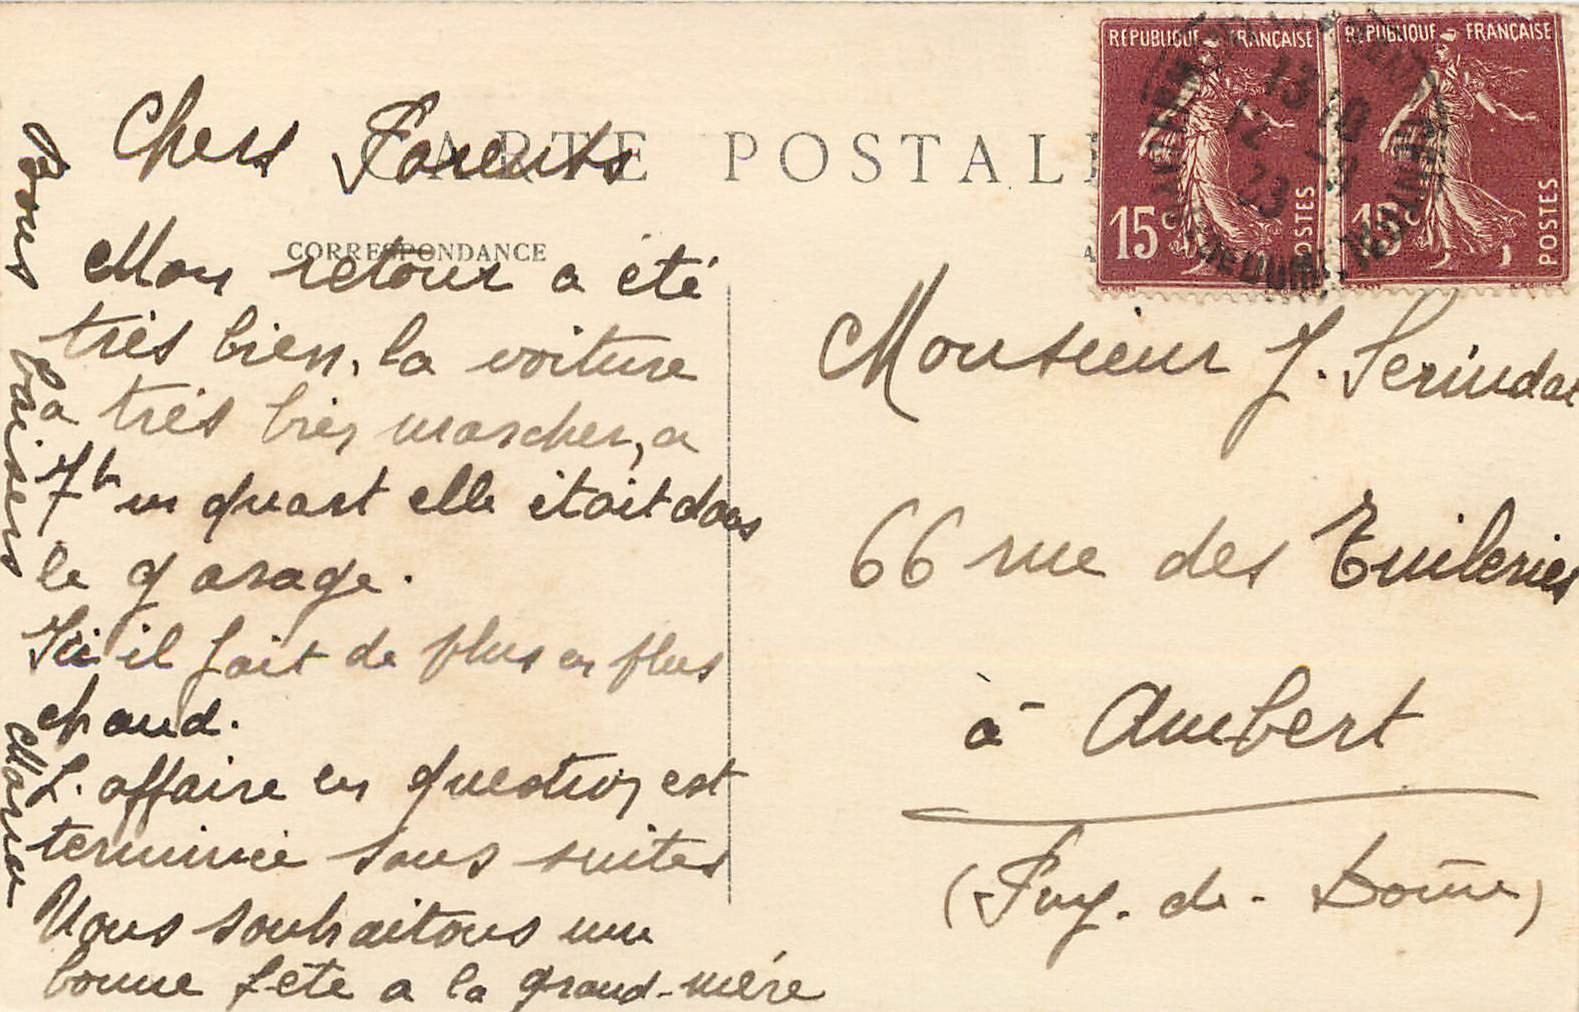 CARTE POSTALE
CORRESPONDANCE
REPUBLIQUE FRANÇAISE
15c
POSTES
REPUBLIQUE FRANÇAISE
POSTES
13 10
12 -8
23
Chers Parents
Mon retour a été
très bien, la voiture
a très bien marcher, a
7h un quart elle était dans
le garage.
Ici il fait de plus en plus
chaud.
L'affaire en question est
terminée sans suites
Vous souhaitons une
bonne fête a la grand-mère
Bons baisers
Monsieur J.
66 rue des Tuileries
à Ambert
(Puy-de-Dôme)